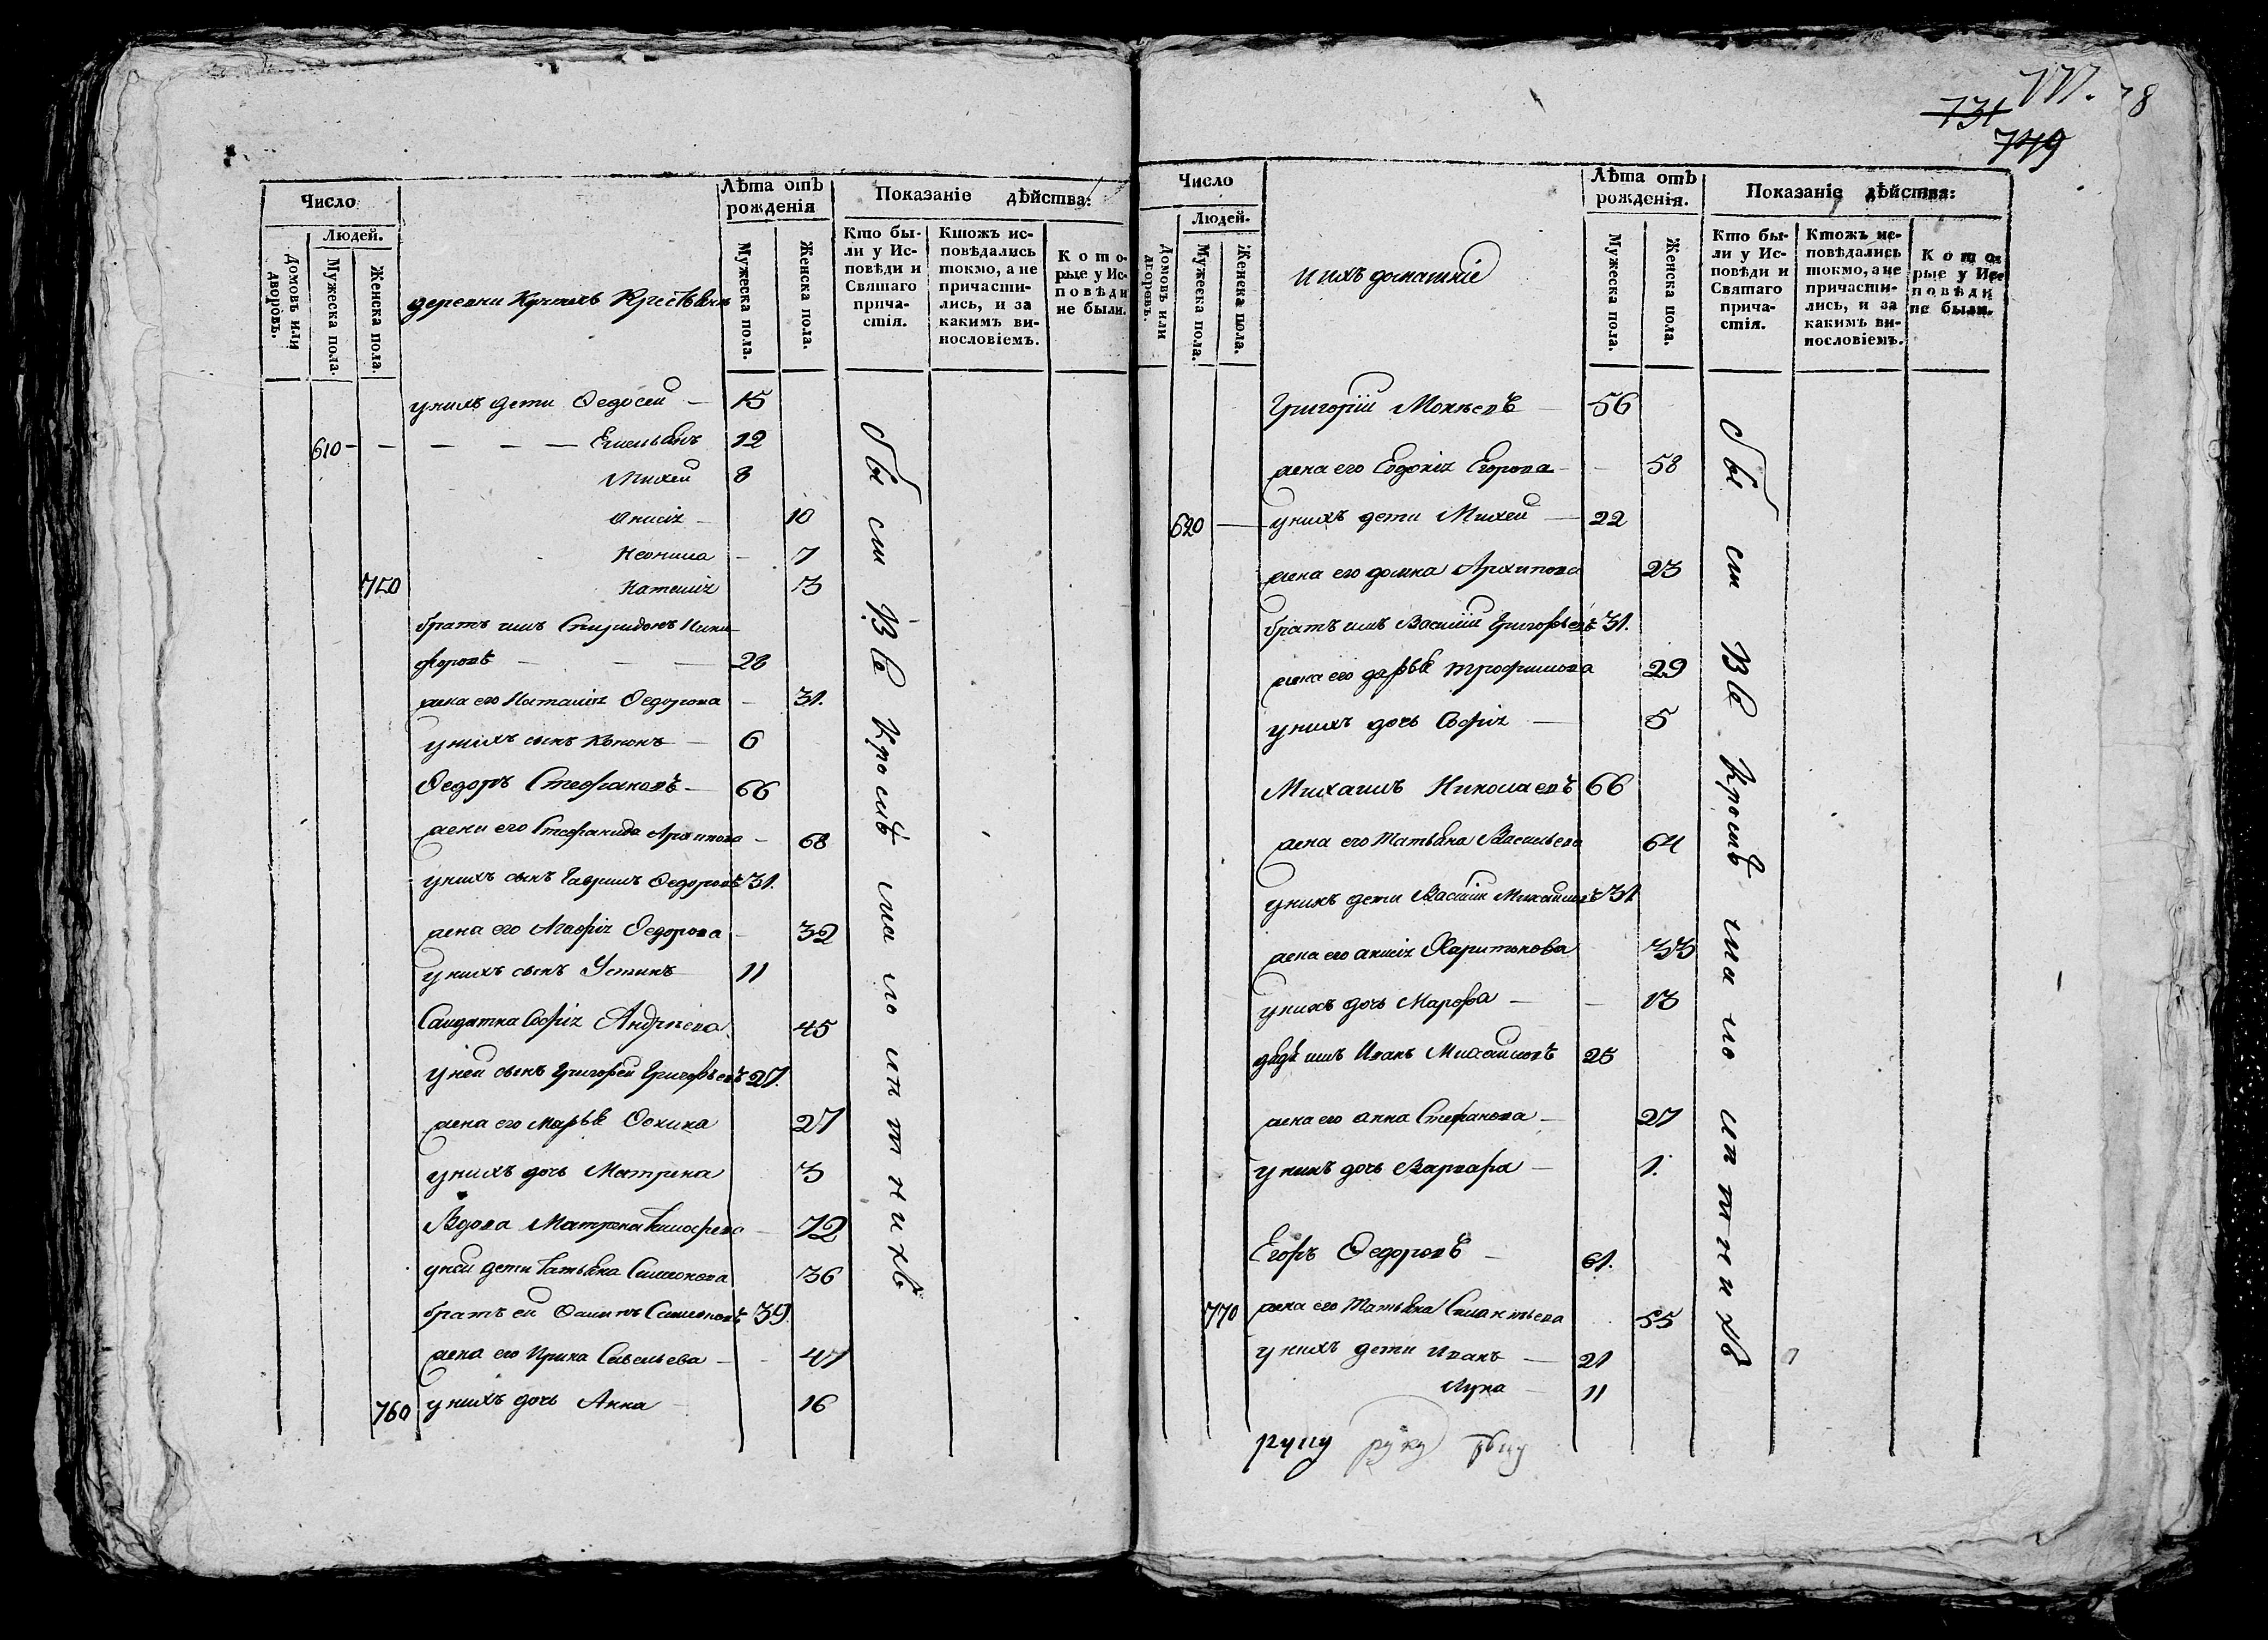 Число
Людей.
Домовъ или дворовъ.
Мужеска пола.
Женска пола.
деревни Крестьянъ
Лѣта отъ рожденія
Мужеска пола.
Женска пола.
Показаніе дѣйства:
Кто бы-
ли у Ис-
повѣди и
Святаго
прича-
стія.
Ктожъ ис-
повѣдались
токмо, а не
причасти-
лись, и за
какимъ ви-
нословіемъ.
Кото-
рые у Ис-
повѣди
не были.
у нихъ дети Ѳедосей — 15
610 — — — — — Емельянъ 12
Михей 8
Анисія — 10
Неонила — 7
750 Наталія 3
братъ имъ Спиридонъ Ники-
форовъ — — — 28
жена его Наталія Ѳедорова — 31.
у нихъ сынъ Кононъ — 6
Ѳедоръ Стефановъ — 66
жена его Стефанида — 68
у нихъ сынъ Гаврилъ Ѳедоровъ 31.
жена его Агафія Ѳедорова — 32
у нихъ сынъ Устинъ 11
Салдатка Софія Андреева 45
у ней сынъ Григорей Григорьевъ 27.
жена его Марья Фокина 27
у нихъ дочь Матрена 3
Вдова Матрена Тимофеева — 72
у ней дети Татьяна Симеонова 36
братъ ей Симеоновъ 39.
жена его Ирина Савельева — 47
760 у нихъ дочь Анна — 16
бы ли Всѣ кромѣ ма ло лѣ т н и хъ
777. 78
731
749
Число
Людей.
Домовъ или дворовъ.
Мужеска пола.
Женска пола.
и ихъ домашніе
Лѣта отъ рожденія.
Мужеска пола.
Женска пола.
Показаніе дѣйства:
Кто бы-
ли у Ис-
повѣди и
Святаго
прича-
стія.
Ктожъ ис-
повѣдались
токмо, а не
причасти-
лись, и за
какимъ ви-
нословіемъ.
Кото-
рые у Ис-
повѣди
не были.
Григорій Мокѣевъ — 56
жена его Евдокія Егорова — — 58
620 — у нихъ дети Михей — 22
жена его Домна Архипова 23
братъ имъ Василій Григорьевъ 31.
жена его Дарья Трофимова 29
у нихъ дочь Софія — 5
Михаилъ Николаевъ 66
жена его Татьяна Васильева 64
у нихъ дети Василій Михаиловъ 31
жена его Анисія Харитонова 33
у нихъ дочь Марфа — — 13
дядя имъ Иванъ Михаиловъ 25
жена его Анна Стефанова — 27
у нихъ дочь Варвара — 1.
Егоръ Ѳедоровъ — 61.
770 жена его Татьяна 55
у нихъ дети Иванъ — 21
Лука — 11
бы ли Всѣ кромѣ ма ло лѣ т н и хъ
руку руку